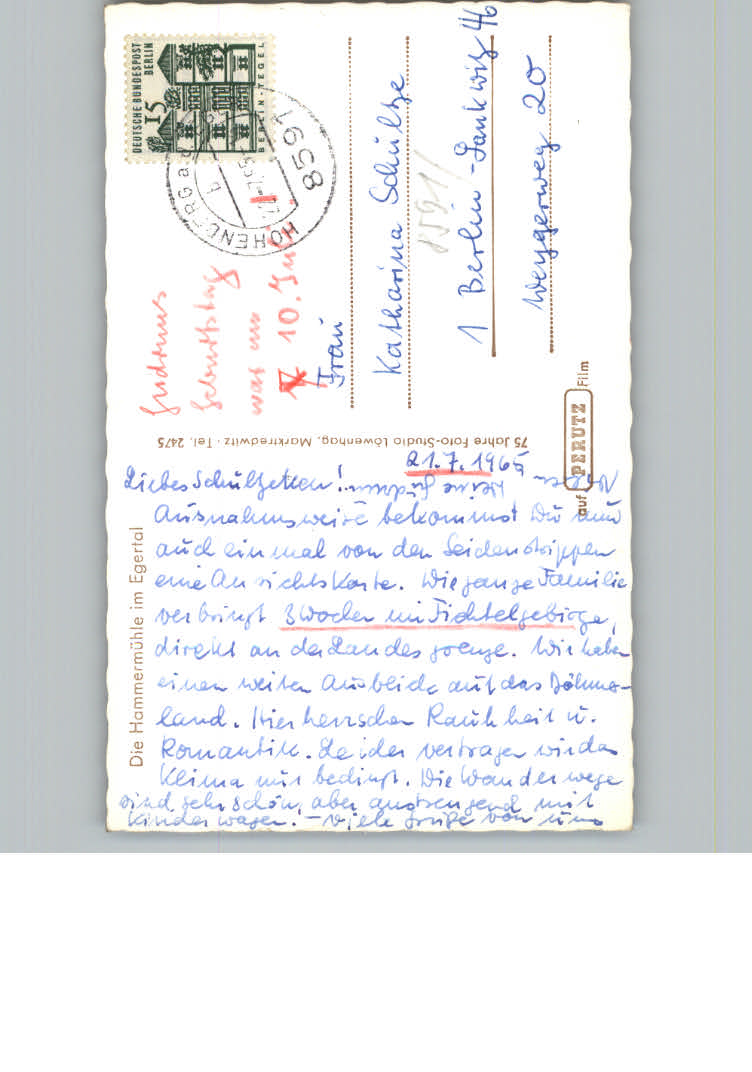 DEUTSCHE BUNDESPOST
BERLIN
15
BERLIN-TEGEL
8591
HOHENBERG a
Gudruns
Geburtstag
war am
10. Juli
Frau
Katharina Schultze
8591
1 Berlin-Lankwitz 46
Weygerweg 20
75 Jahre Foto-Studio Löwenhag, Marktredwitz · Tel. 2475
auf PERUTZ Film
Die Hammermühle im Egertal
21.7.1965
Liebes Schultzchen!
Ausnahmsweise bekommst Du nun
auch einmal von den Seidenstrippen
eine Ansichtskarte. Die ganze Familie
verbringt 3 Wochen im Fichtelgebirge,
direkt an der Landesgrenze. Wir haben
einen weiten Ausblick auf das Böhmer-
land. Hier herrschen Rauhheit u.
Romantik. Leider vertragen wir das
Klima nur bedingt. Die Wanderwege
sind sehr schön, aber anstrengend mit
Kinderwagen! – Viele Grüße von uns
Deine Gudrun